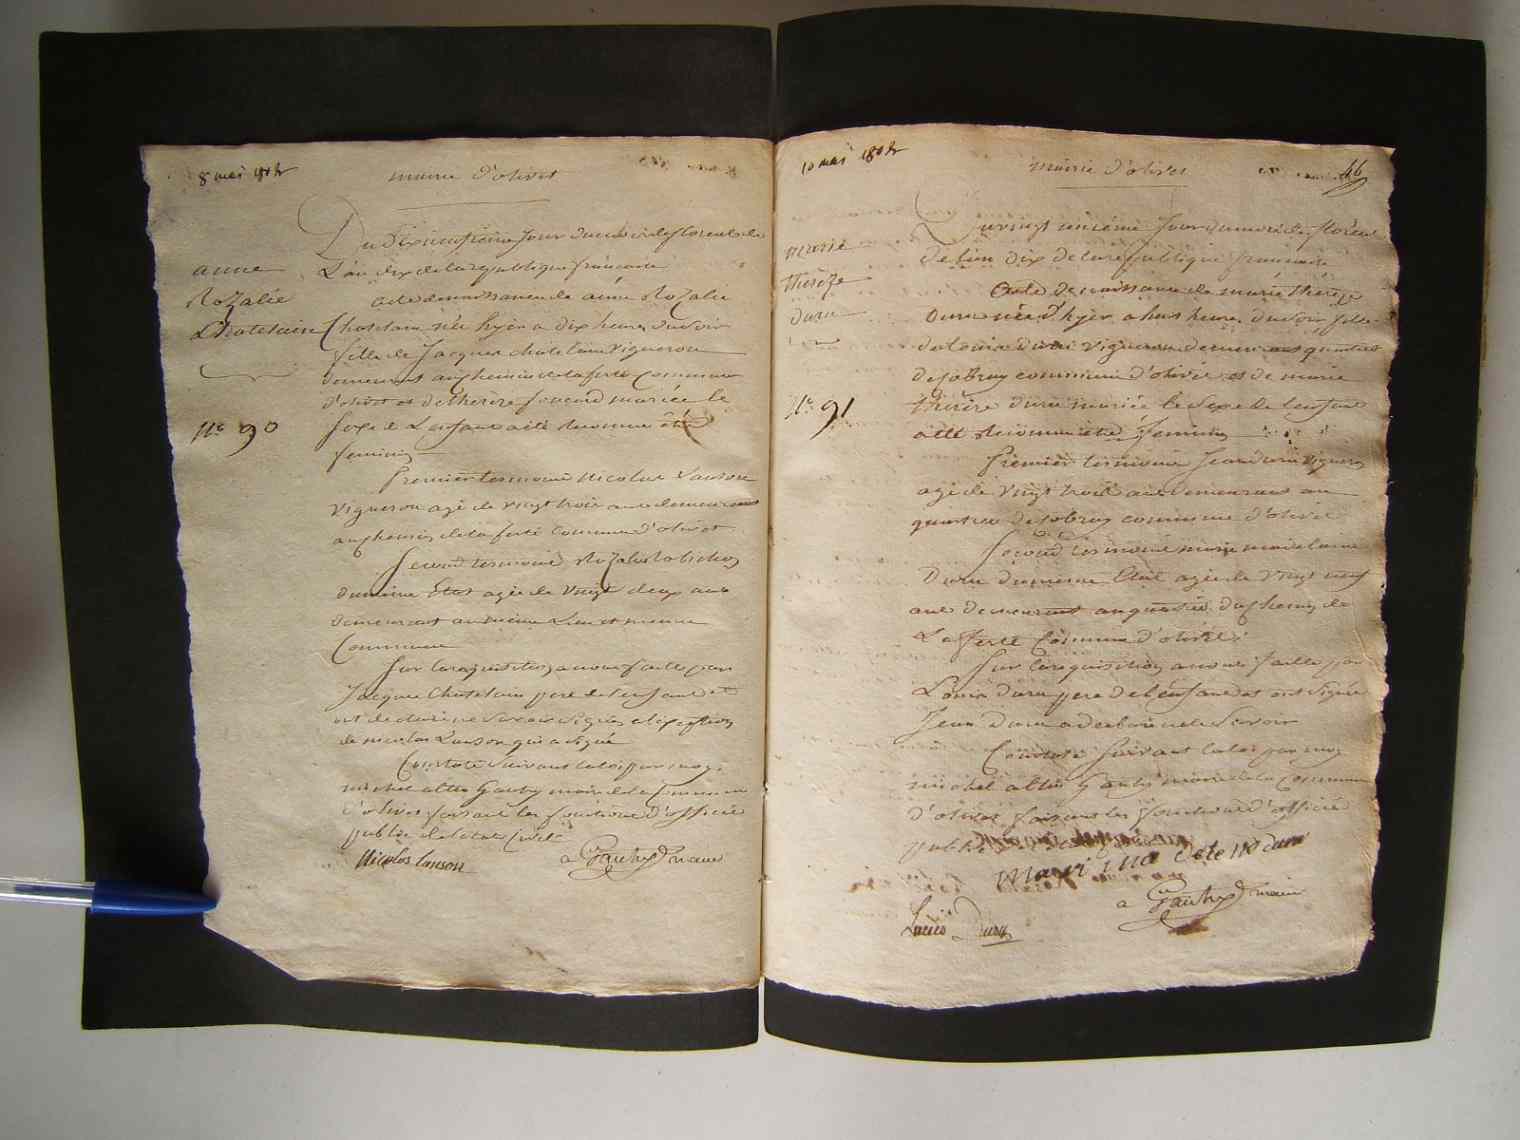 8 mai 1802
mairie d'olivet
Du Dixneufième Jour du mois de floreal de
L'an dix de la republique francaise
anne
Rozalie
Chatelain
acte de naissance de anne Rozalie
Chatelain née hyer a dix heures du soir
fille de Jacques chatelain vigneron
demeurant au chemin de la ferté Commune
d'olivet et de therese foucard mariée le
Nº 90
sexe de L'enfant a été reconnu être
feminin
Premier temoin Nicolas Lanson
vigneron agé de vingt trois ans demeurant
au chemin de la ferté Commune d'olivet
Second temoin Rozalie robichon
du même Etat agée de vingt deux ans
demeurant au même Lieu et même
Commune
Sur la requisition a nous faitte par
Jacques Chatelain pere de l'enfant et
ont declaré ne Savoir signer a l'exception
de nicolas Lanson qui a signé
Constaté Suivant la loi par moy
michel altin Gauthy maire de la Commune
d'olivet faisant les fonctions d'officié
public de l'etat Civil
Nicolas lanson
Gauthy maire
10 mai 1802
mairie d'olivet
46
Du vingt unième Jour du mois de floréal
de L'an dix de la république francaise
marie
thérèze
duru
acte de naissance de marie thérèze
duru née d'hyer a huit heures du soir fille
de louis duru vigneron demeurant quartier
de sobray commune d'olivet et de marie
Nº 91
thérèse duru mariée le Sexe de lenfant
a été reconnu être feminin
Premier temoin Jean duru vigneron
agé de vingt trois ans demeurant au
quartier de sobray commune d'olivet
Second temoin marie madelaine
Duru du même Etat agée de vingt neuf
ans demeurant au quartier du chemin de
La ferté Commune d'olivet
Sur la requisition a nous faitte par
Louis duru pere de l'enfant et ont signé
Jean duru a declaré ne Savoir
Constaté Suivant la loi par moy
michel altin Gauthy maire de la Commune
d'olivet faisant les fonctions d'officié
public
duru
Gauthy maire
Louis Duru